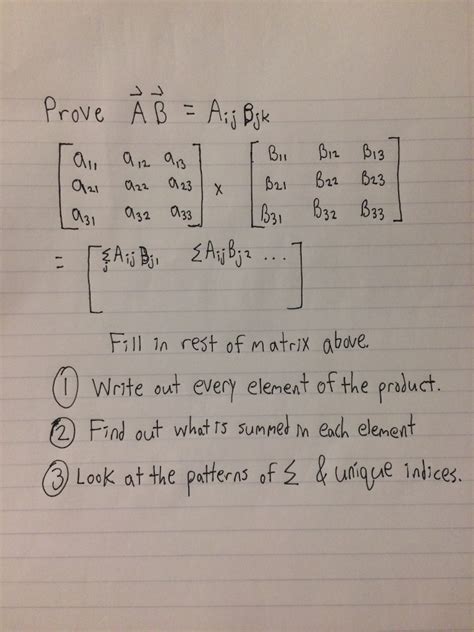 Prove A⃗ B⃗ = Aij Bjk
[a11 a12 a13] [B11 B12 B13]
[a21 a22 a23] x [B21 B22 B23]
[a31 a32 a33] [B31 B32 B33]
= [Σj Aij Bj1 ΣAijBj2 ...]
Fill in rest of matrix above.
① Write out every element of the product.
② Find out what is summed in each element
③ Look at the patterns of Σ & unique indices.